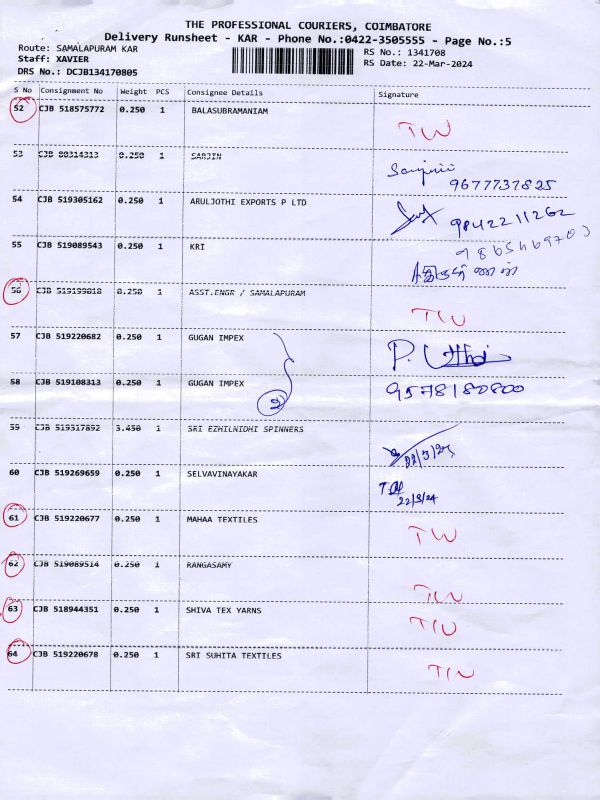 THE PROFESSIONAL COURIERS, COIMBATORE
Delivery Runsheet - KAR - Phone No.:0422-3505555 - Page No.:5
Route: SAMALAPURAM KAR RS No.: 1341708
Staff: XAVIER RS Date: 22-Mar-2024
DRS No.: DCJB134170805
S No Consignment No Weight PCS Consignee Details Signature
52 CJB 518575772 0.250 1 BALASUBRAMANIAM
TW
53 CJB 80314313 0.250 1 SARJIN
9677737825
54 CJB 519305162 0.250 1 ARULJOTHI EXPORTS P LTD
9842211262
55 CJB 519089543 0.250 1 KRI
56 CJB 519199818 0.250 1 ASST.ENGR / SAMALAPURAM
TW
57 CJB 519220682 0.250 1 GUGAN IMPEX
58 CJB 519108313 0.250 1 GUGAN IMPEX 9578180800
2
59 CJB 519317892 3.450 1 SRI EZHILNIDHI SPINNERS
60 CJB 519269659 0.250 1 SELVAVINAYAKAR
22/3/24
61 CJB 519220677 0.250 1 MAHAA TEXTILES
TW
62 CJB 519089514 0.250 1 RANGASAMY
TW
63 CJB 518944351 0.250 1 SHIVA TEX YARNS
TW
64 CJB 519220678 0.250 1 SRI SUHITA TEXTILES
TW